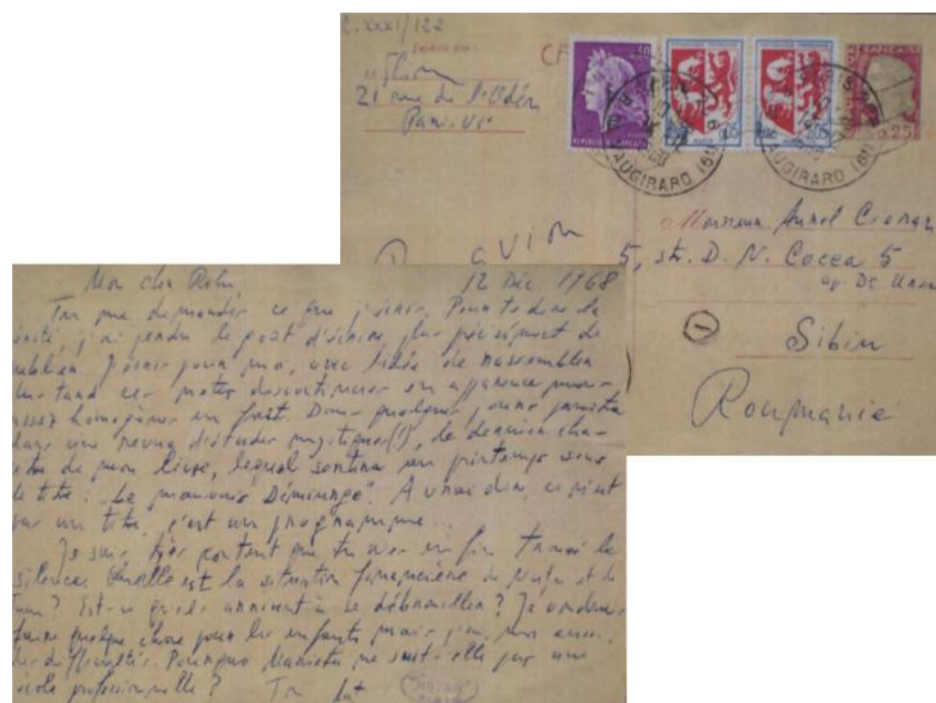 C. XXXI/122
21 rue de l'Odéon
Paris-VI
0,05
0,05
0,25
REPUBLIQUE FRANCAISE
VAUGIRARD (61)
VAUGIRARD (61)
Monsieur Aurel Cioran
5, str. D. N. Cocea 5
Sibiu
Roumanie
avion
1
12 Déc. 1968
Mon cher Relu
Tu me demandes ce que j'écris. Pour te dire la
vérité, j'ai perdu le goût d'écrire, plus précisément de
publier. J'écris pour moi, avec l'idée de rassembler
plus tard ces notes discontinues en apparence mais
assez homogènes en fait. Dans quelques jours paraîtra
dans une revue d'études mystiques(!), le dernier cha-
pitre de mon livre, lequel sortira au printemps sous
le titre: "Le mauvais Démiurge". A vrai dire, ce n'est
pas un titre, c'est un programme...
Je suis très content que tu aies enfin trouvé le
silence. Quelle est la situation financière de et de
? Est-ce qu'ils arrivent à se débrouiller? Je voudrais
faire quelque chose pour les enfants mais j'ai, moi aussi,
des difficultés. Pourquoi ne suit-elle pas une
école professionnelle? Ton Luț